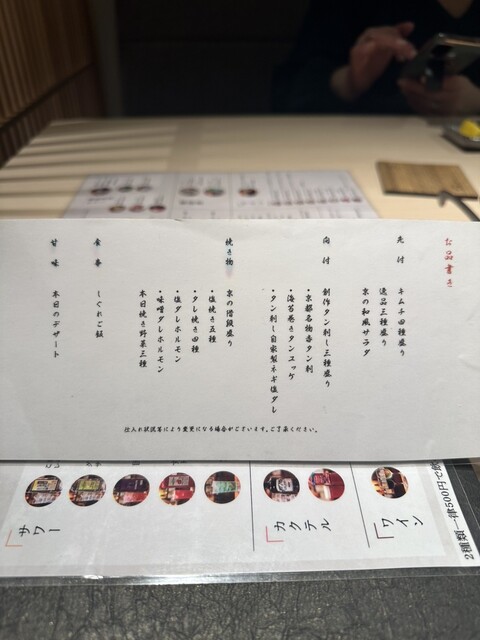 お品書き
先付
キムチ四種盛り
逸品三種盛り
京の和風サラダ
向付
創作タン刺し三種盛り
・京都名物壺タン刺
・海苔巻きタンユッケ
・タン刺し自家製ネギ塩ダレ
焼き物
京の階段盛り
・塩焼き五種
・タレ焼き四種
・塩ダレホルモン
・味噌ダレホルモン
本日焼き野菜三種
食事
しぐれご飯
甘味
本日のデザート
仕入れ状況等により変更になる場合がございます。ご了承ください。
2種類一律500円で飲
「ワイン
「カクテル
「サワー